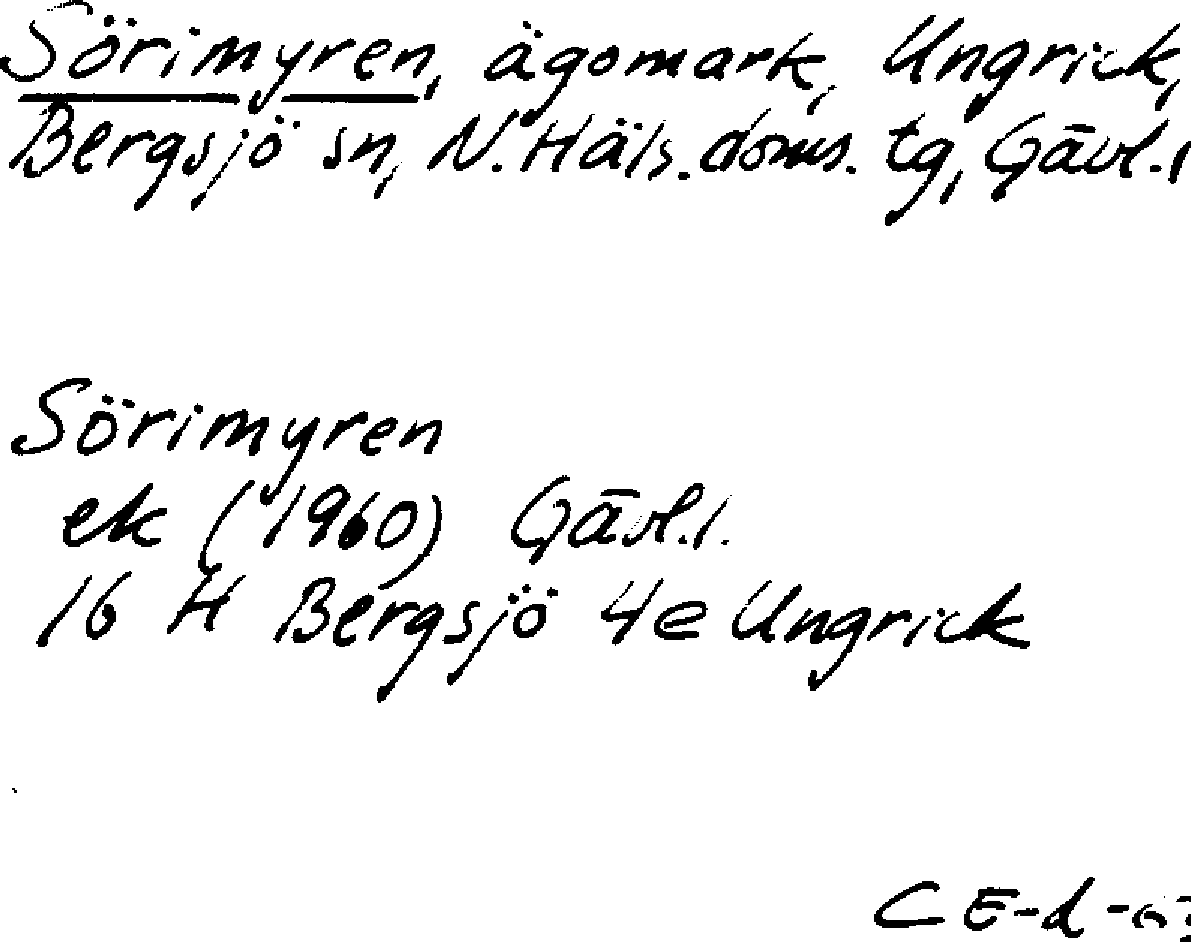 Sörimyren, ägomark, Ungrick,
Bergsjö sn, N. Häls. doms. tg, Gävl. l
Sörimyren
ek (1960) Gävl. l.
16 H Bergsjö 4e Ungrick
CE-d-63